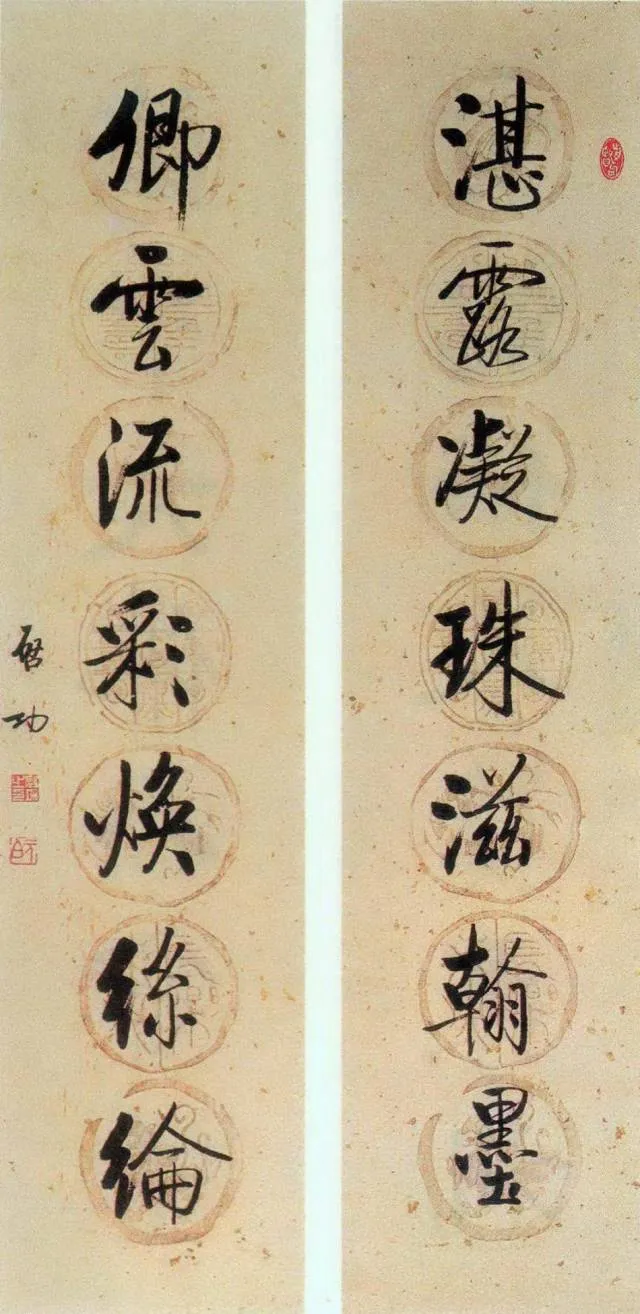 湛露凝珠滋翰墨
卿雲流彩煥絲綸
啓功